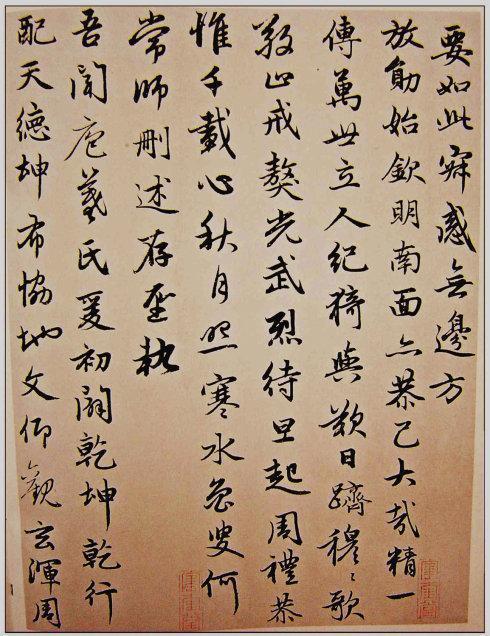 要如此寐感無邊方
放勛始欽明南面亦恭己大哉精一
傳萬世立人紀猗與歎日躋穆〻歌
敬止戒獒光武烈待旦起周禮恭
惟千載心秋月照寒水魯叟何
常師刪述存聖軌
吾聞庖羲氏爰初闢乾坤乾行
配天德坤布協地文仰觀玄渾周